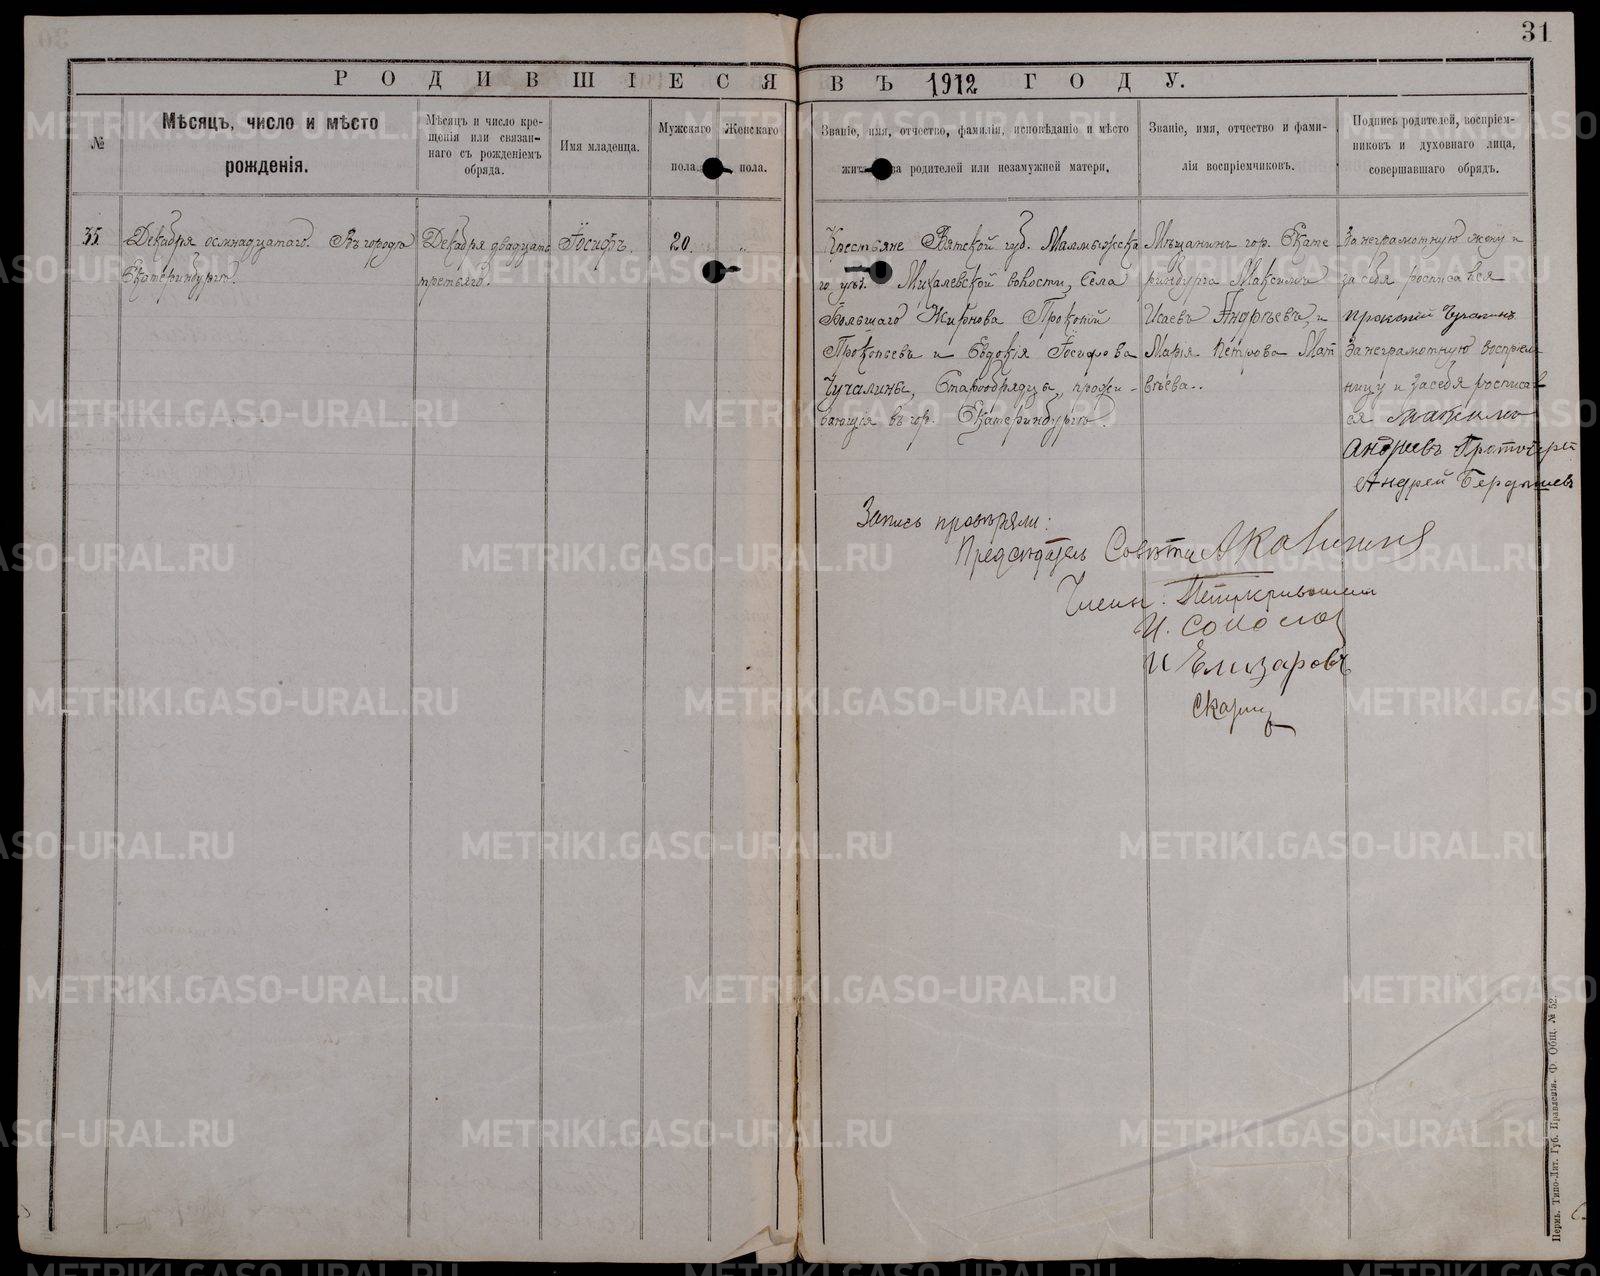 31
РОДИВШІЕСЯ ВЪ 1912 ГОДУ.
№
Мѣсяцъ, число и мѣсто
рожденія.
Мѣсяцъ и число кре-
щенія или связан-
наго съ рожденіемъ
обряда.
Имя младенца.
Мужскаго
пола.
Женскаго
пола.
Званіе, имя, отчество, фамилія, исповѣданіе и мѣсто
родителей или незамужней матери.
Званіе, имя, отчество и фами-
лія воспріемчиковъ.
Подпись родителей, воспріем-
никовъ и духовнаго лица,
совершавшаго обрядъ.
35
Декабря осмнадцатаго. Въ городѣ
Екатеринбургѣ.
Декабря двадцать
третьяго.
Іосифъ.
20.
„
Крестьяне Вятской губ. Малмыжска
го уѣз. волости, Села
Большаго Прокопій
Прокопьевъ и Евдокія Іосифова
Чучалины, Старообрядцы, прожи-
вающія въ гор. Екатеринбургѣ.
Мѣщанинъ гор. Екате
ринбурга Максимъ
Исаевъ Андрѣевъ, и
Марія Петрова Мат
вѣева..
За неграмотную жену и
за себя росписался
Прокопій Чучалинъ
За неграмотную воспріем
ницу и за себя росписал
ся Максимъ
Андреевъ Протоіерей
Андрей Бердышевъ
Запись провѣряли:
Предсѣдатель Совѣта
Члены:
И. Соколов
И Елизаровъ
Пермь. Типо-Лит. Губ. Правленія. Ф. Общ. № 52.
METRIKI.GASO-URAL.RU